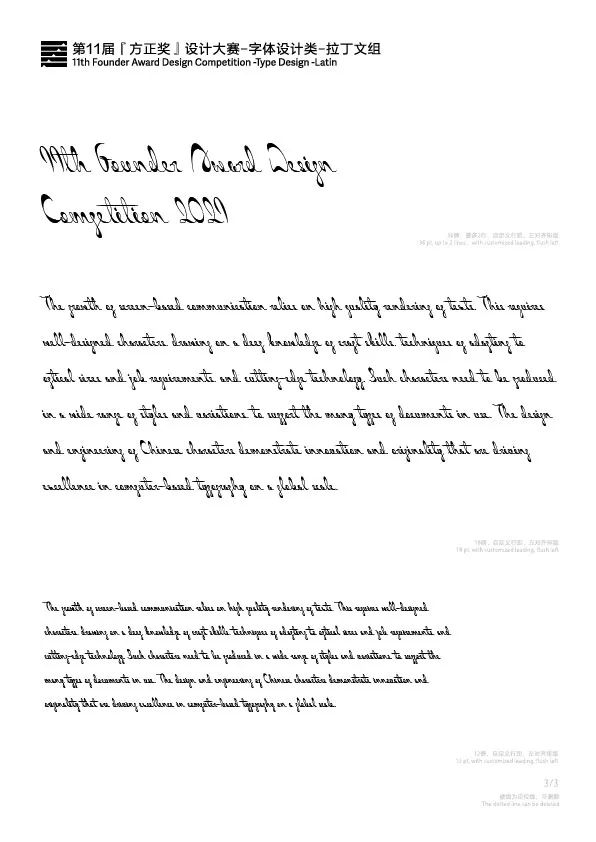 第11届『方正奖』设计大赛-字体设计类-拉丁文组
11th Founder Award Design Competition -Type Design -Latin
11th Founder Award Design
Competition 2021
36 pt, up to 2 lines, with customized leading, flush left
The growth of screen-based communication relies on high quality rendering of texts. This requires
well-designed characters, drawing on a deep knowledge of craft skills, techniques of adapting to
optical sizes and job requirements, and cutting-edge technology. Such characters need to be produced
in a wide range of styles and variations to support the many types of documents in use. The design
and engineering of Chinese characters demonstrate innovation and originality that are driving
excellence in computer-based typography on a global scale.
18磅，自定义行距，左对齐排版
18 pt, with customized leading, flush left
The growth of screen-based communication relies on high quality rendering of texts. This requires well-designed
characters, drawing on a deep knowledge of craft skills, techniques of adapting to optical sizes and job requirements, and
cutting-edge technology. Such characters need to be produced in a wide range of styles and variations to support the
many types of documents in use. The design and engineering of Chinese characters demonstrate innovation and
originality that are driving excellence in computer-based typography on a global scale.
12磅，自定义行距，左对齐排版
12 pt, with customized leading, flush left
3/3
The dotted line can be deleted